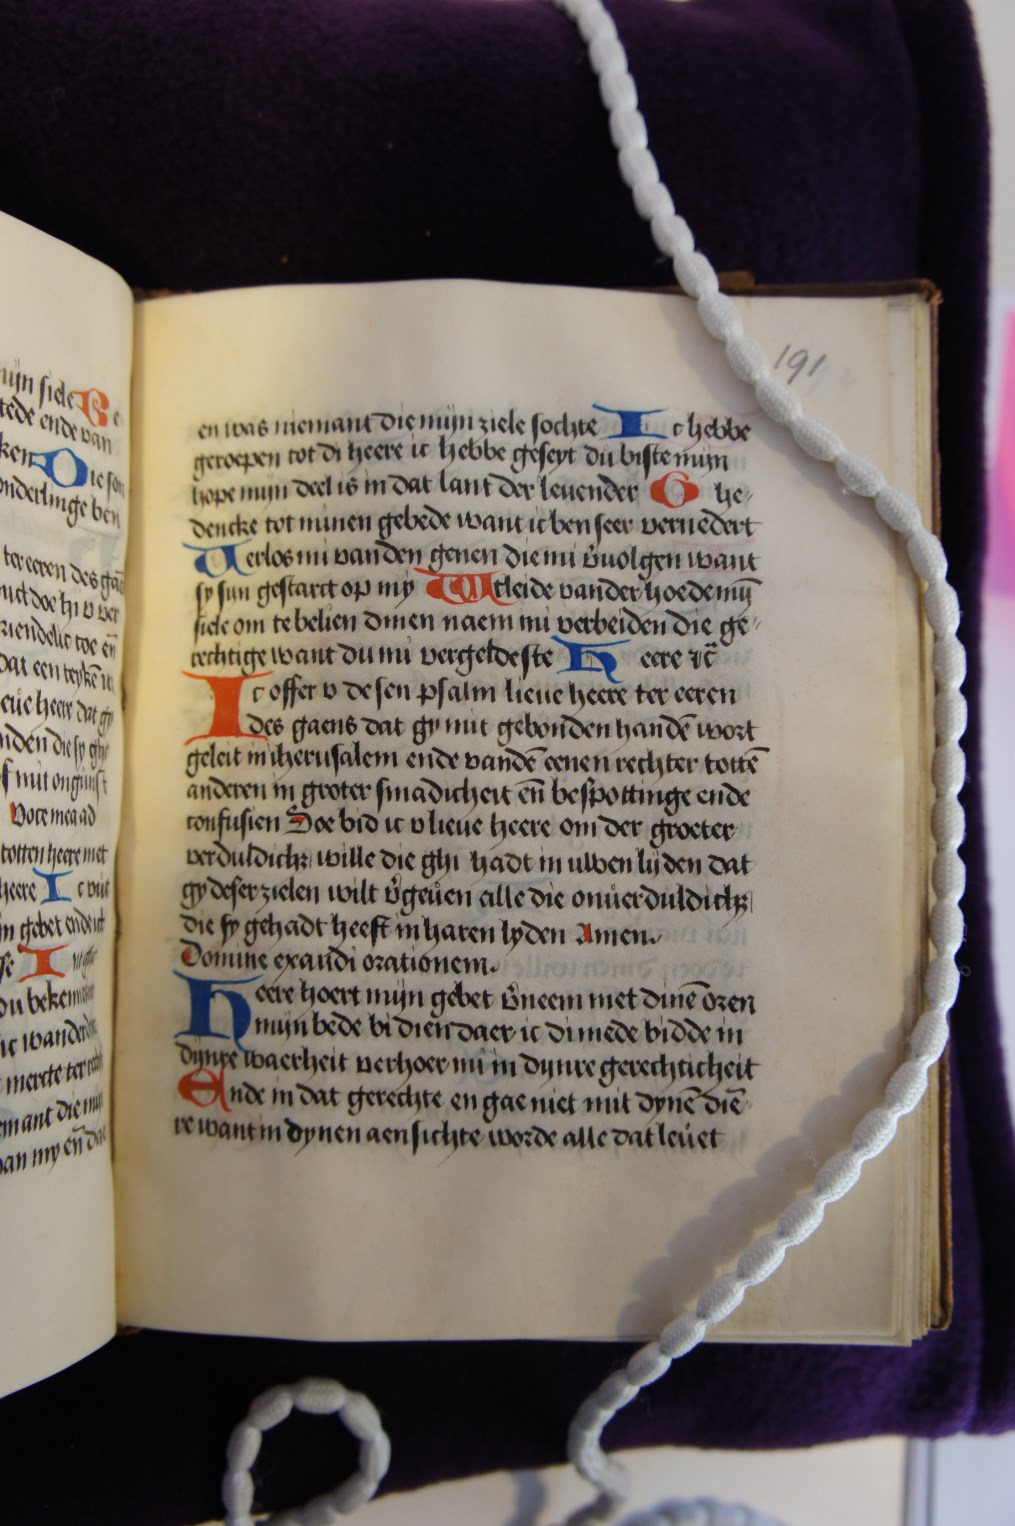 mijn siele Ge
tede ende van
ken Die son
onderlinge ben
ter eeren des
mit doe hi v ver
vriendelic toe en̄
dat een teykē
lieue heere dat gy
anden die sy ghe
mit ongunst
Voce mea ad
totten heere met
heere Ic uut
gebet ende ic
se In
du beken
ic wander
merckte ter
emant die mij
van my en̄ dat
191
en was niemant die mijn ziele sochte Ic hebbe
geroepen tot di heere ic hebbe geseyt du biste mijn
hope mijn deel is in dat lant der leuender Ghe-
dencke tot minen gebede want ic ben seer vernedert
Verlos mi van den genen die mi v̄uolgen want
sy sijn gestarct op my Wtleide vander hoede mijn̄
siele om te belien dinen naem mi verbeiden die ge-
rechtige want du mi vergeldeste Heere ⁊c̄
Ic offer v desen psalm lieue heere ter eeren
des gaens dat gy mit gebonden handē wort
geleit in iherusalem ende vandē eenen rechter tottē
anderen in groter smadicheit en̄ bespottinge ende
confusien Soe bid ic v lieue heere om der groeter
verduldichz wille die ghi hadt in uwen lijden dat
gy deser zielen wilt v̄geuen alle die onuerduldichz
die sy gehadt heeft in haren lyden Amen.
Domine exaudi orationem.
Heere hoert mijn gebet v̄neem met dinē oren
mijn bede bi dien daer ic di mede bidde in
dijnre waerheit verhoer mi in dynre gerechticheit
Ende in dat gerechte en gae niet mit dynē diē-
re want in dynen aensichte worde alle dat leuet